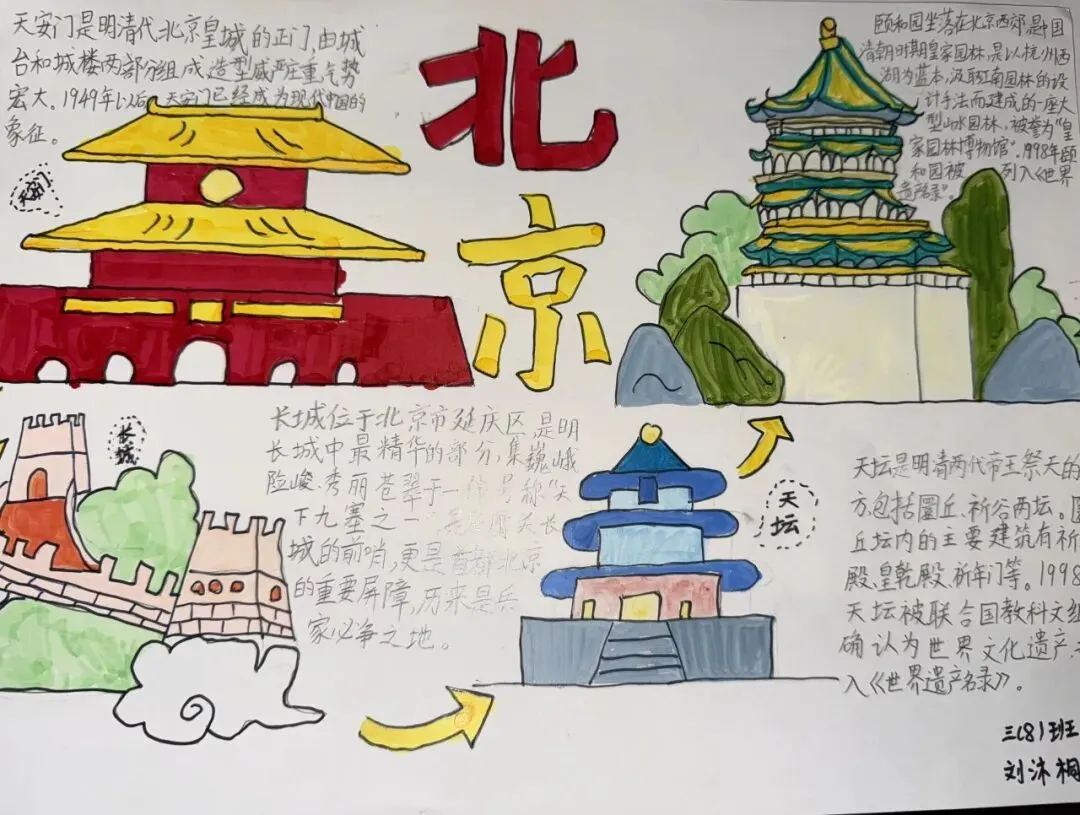 天安门是明清代北京皇城的正门,由城
台和城楼两部分组成,造型威严庄重,气势
宏大。1949年以后,天安门已经成为现代中国的
象征。
天安门
北
京
颐和园坐落在北京西郊,是中国
清朝时期皇家园林,是以杭州西
湖为蓝本,汲取江南园林的设
计手法而建成的一座大
型山水园林,被誉为“皇
家园林博物馆”.1998年颐
和园被 列入《世界
遗产名录》。
长城
长城位于北京市延庆区,是明
长城中最精华的部分,集巍峨
险峻、秀丽苍翠于一 号称“天
下九塞之一 关长
城的前哨,更是首都北京
的重要屏障,历来是兵
家必争之地。
天坛
天坛是明清两代帝王祭天的
方,包括圜丘、祈谷两坛。
丘坛内的主要建筑有祈
殿、皇乾殿、祈年门等。1998
天坛被联合国教科文组
确认为世界文化遗产,
入《世界遗产名录》。
三(8)班
刘沐桐